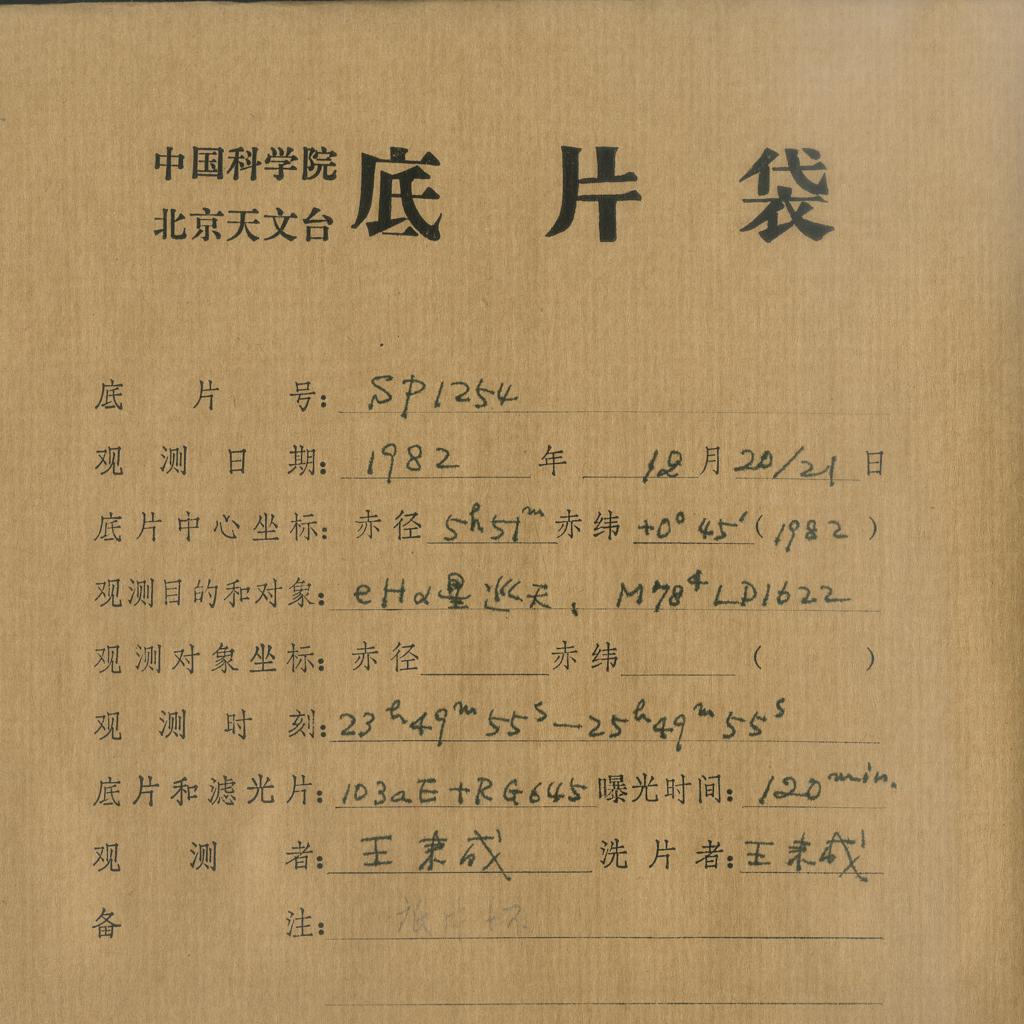 中国科学院
北京天文台
底片袋
底片号：SP1254
观测日期：1982年12月20/21日
底片中心坐标：赤径5ʰ51ᵐ赤纬+0°45′（1982）
观测目的和对象：eHα星巡天、M78 LD1622
观测对象坐标：赤径 赤纬 （ ）
观测时刻：23ʰ49ᵐ55ˢ—25ʰ49ᵐ55ˢ
底片和滤光片：103aE+RG645曝光时间：120min.
观测者：王来成 洗片者：王来成
备注：底片坏